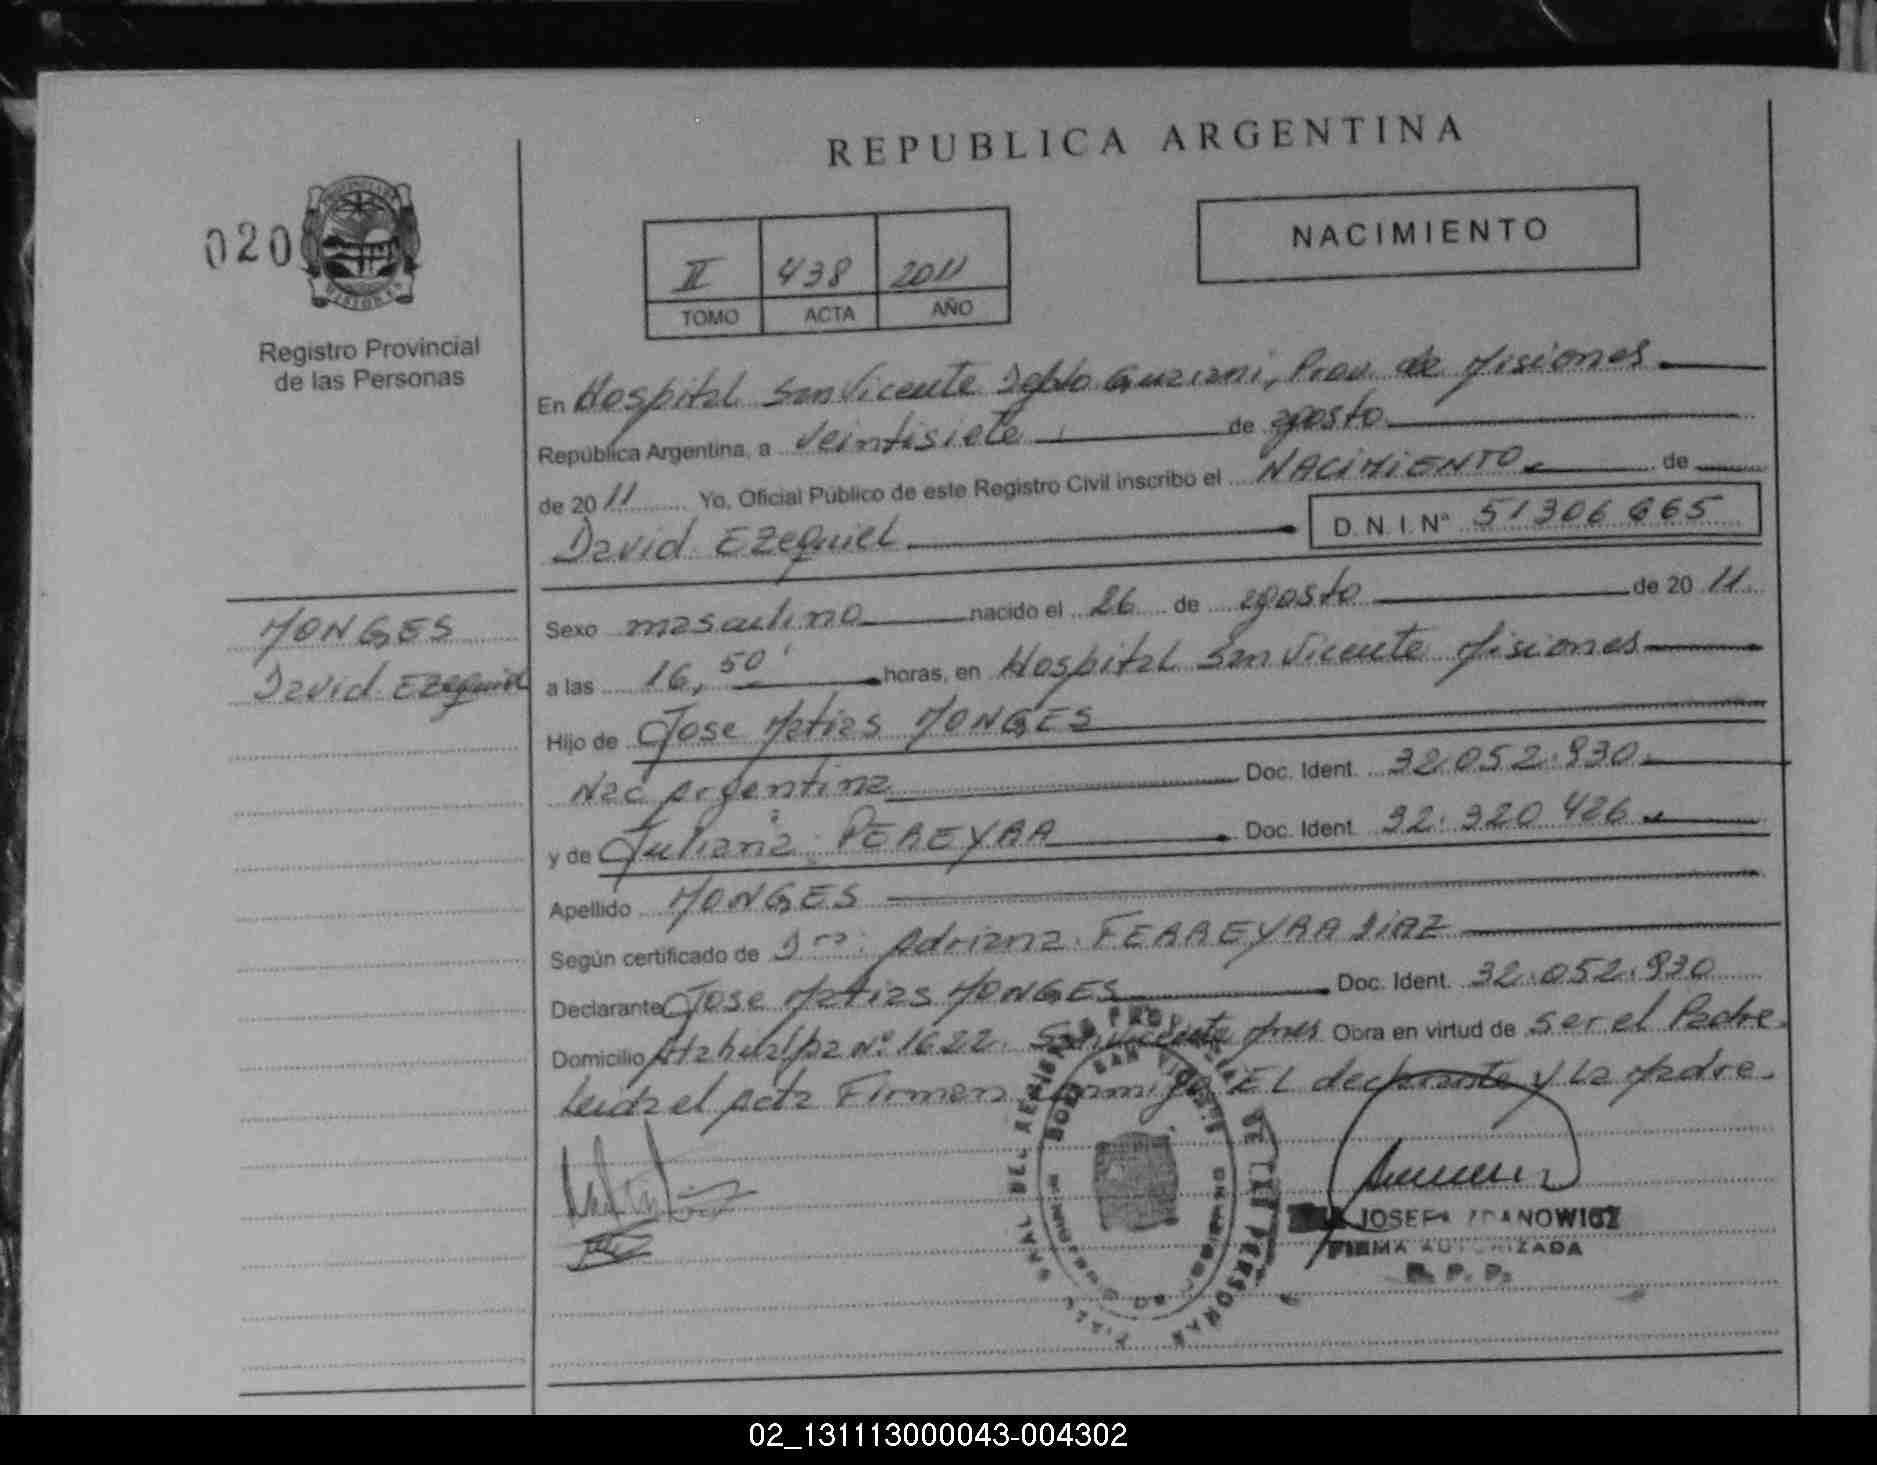 REPUBLICA ARGENTINA
NACIMIENTO
020
PROVINCIA DE
MISIONES
Registro Provincial
de las Personas
II 438 2011
TOMO ACTA AÑO
En Hospital San Vicente Dpto Guarani, Prov. de Misiones
República Argentina, a veintisiete de agosto
de 2011 Yo, Oficial Público de este Registro Civil inscribo el NACIMIENTO de
David Ezequiel D.N.I. Nº 51306665
MONGES
David Ezequiel
Sexo masculino nacido el 26 de agosto de 2011
a las 16,50' horas, en Hospital San Vicente Misiones
Hijo de Jose Matias MONGES
Nac Argentina Doc. Ident. 32.052.930
y de Juliana PEREYRA Doc. Ident. 92.320 426
Apellido MONGES
Según certificado de Dra: Adriana FERREYRA DIAZ
Declarante Jose Matias MONGES Doc. Ident. 32.052.930
Domicilio Atahualpa Nº 1622. San Vicente Mnes Obra en virtud de ser el Padre.
Leida el acta Firman conmigo El declarante y La Madre.
JOSEFA ZDANOWICZ
FIRMA AUTORIZADA
R. P. P.
02_131113000043-004302